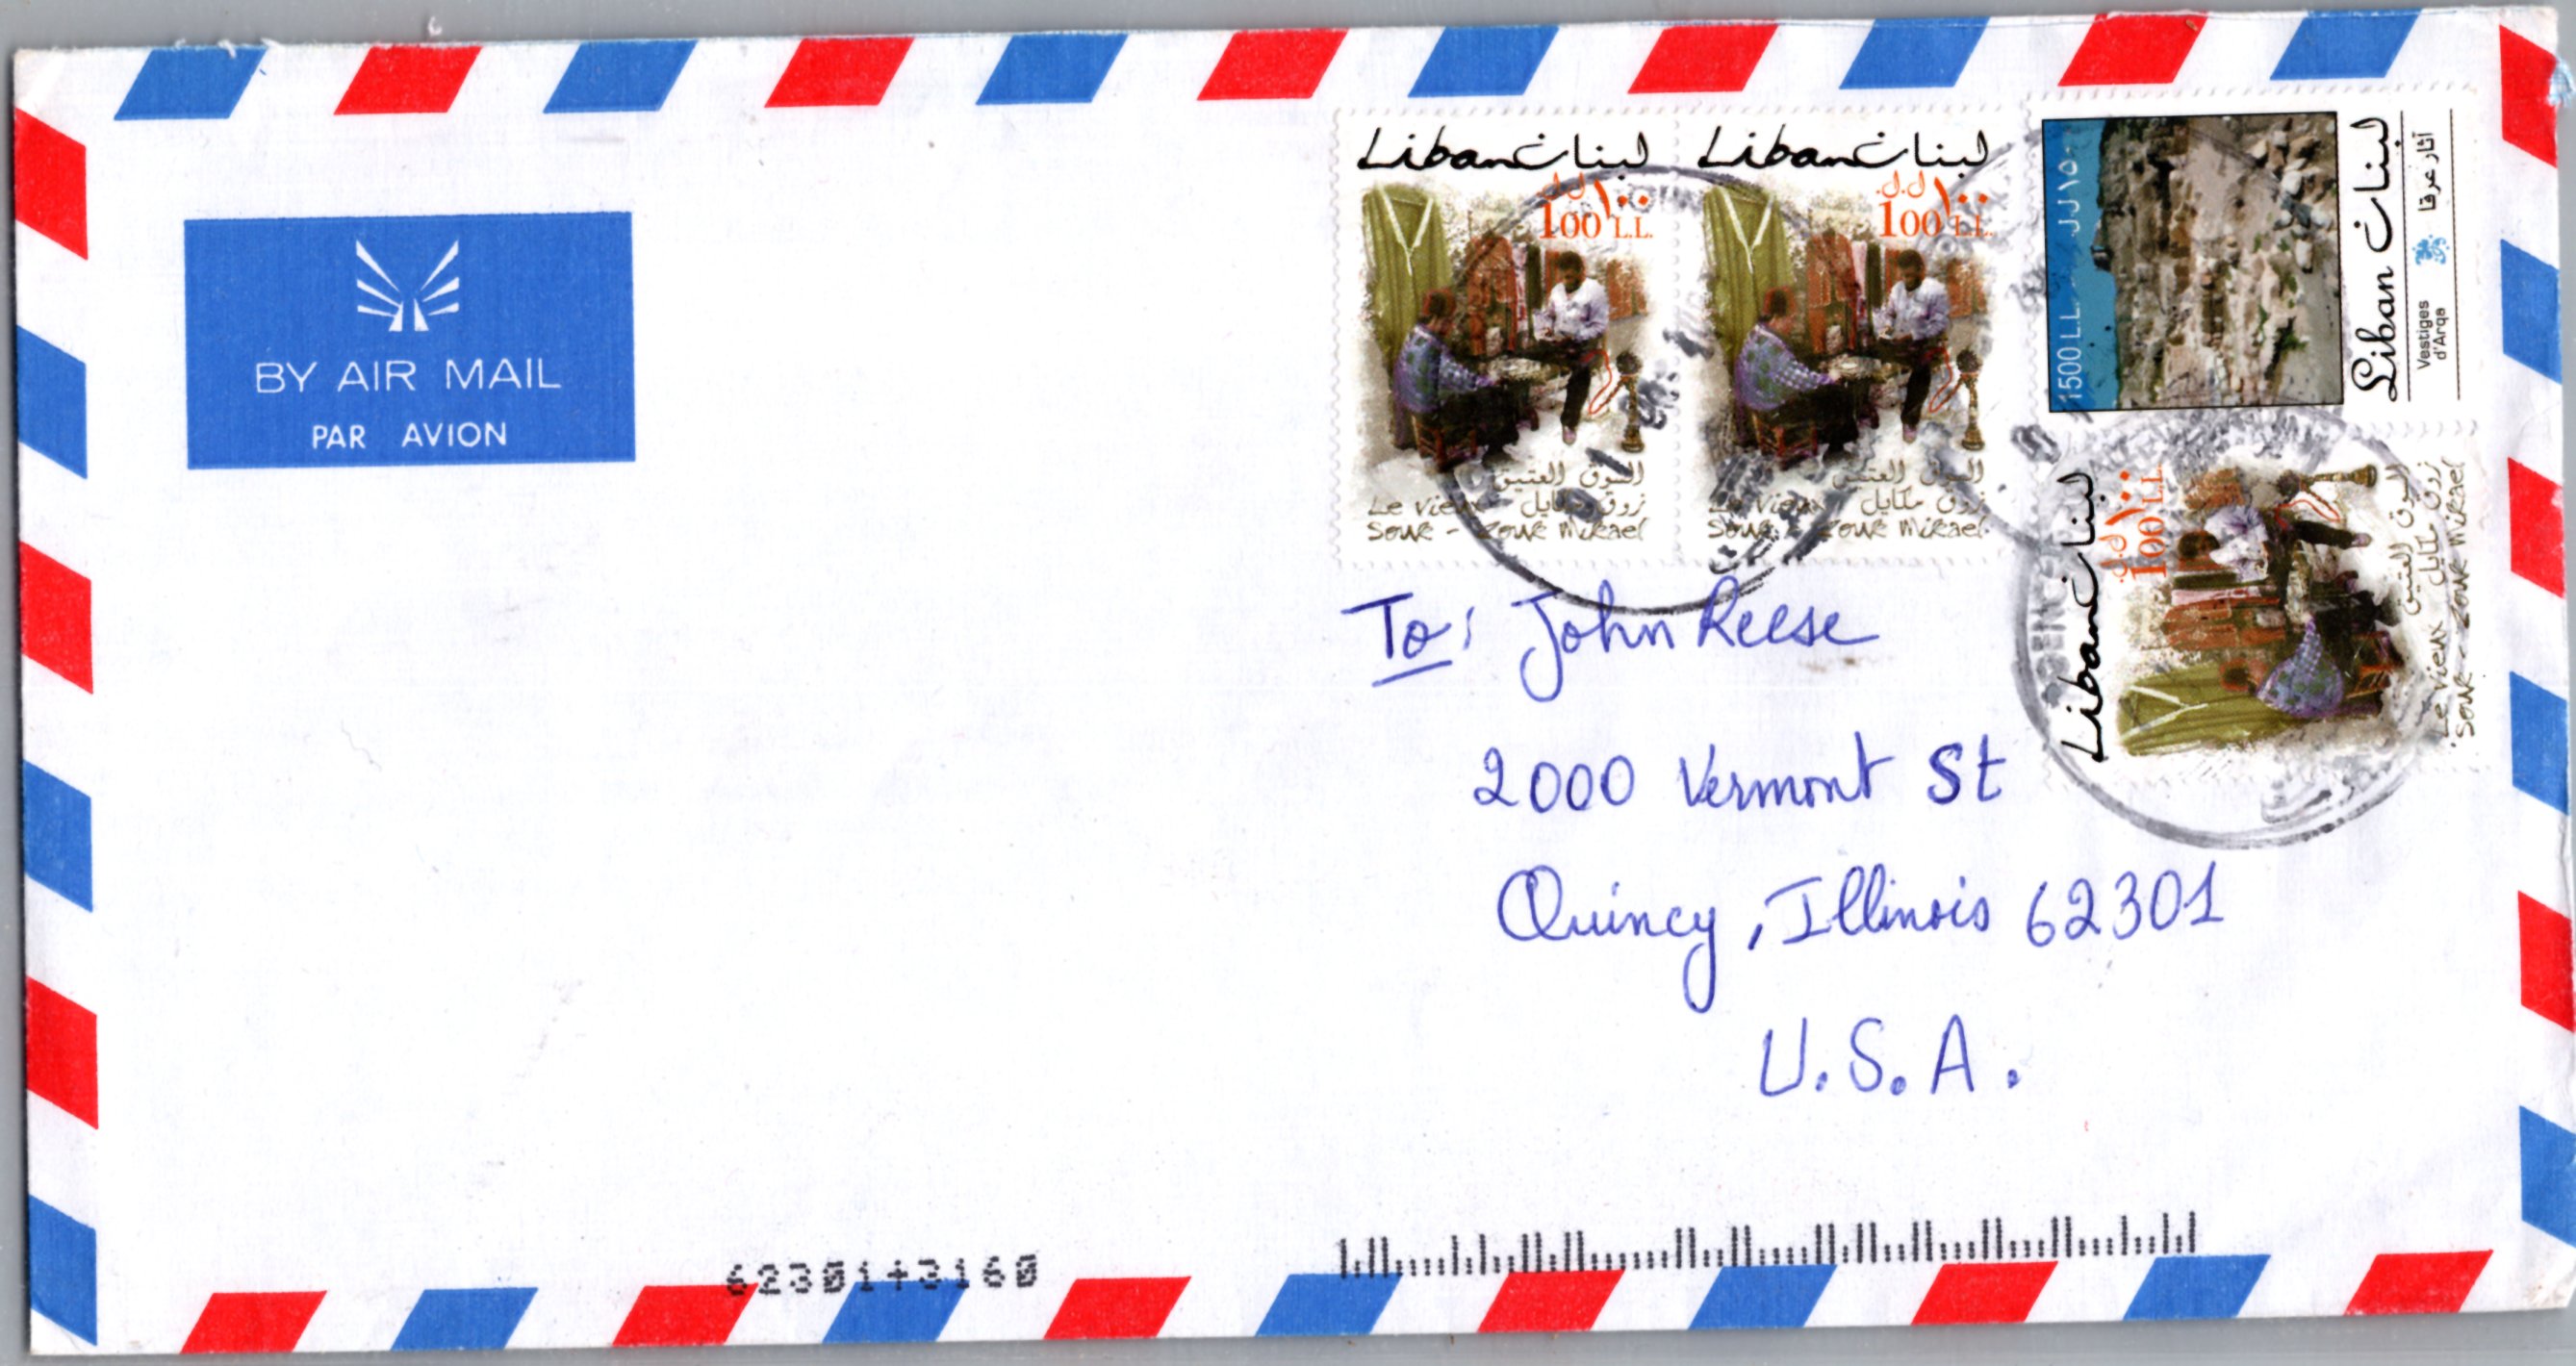 BY AIR MAIL
PAR AVION
Liban لبنان
١٠٠ ل.ل.
100 L.L.
السوق العتيق
Le vieux زوق مكايل
Souk - Zouk Mikael
Liban لبنان
١٠٠ ل.ل.
100 L.L.
السوق العتيق
Le vieux زوق مكايل
Souk - Zouk Mikael
1500 L.L. ١٥٠٠ ل.ل
Liban لبنان
Vestiges
d'Arqa
آثار عرقا
Liban لبنان
١٠٠ ل.ل.
100 L.L.
السوق العتيق
Le vieux زوق مكايل
Souk - Zouk Mikael
To: John Reese
2000 Vermont St
Quincy, Illinois 62301
U.S.A.
62301+3160